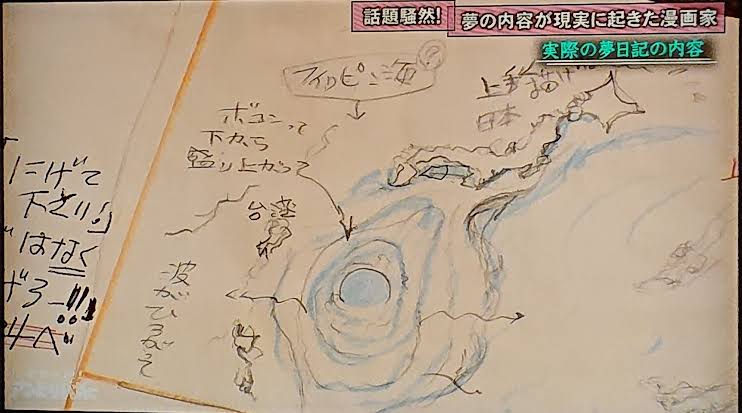 話題騒然!
夢の内容が現実に起きた漫画家
実際の夢日記の内容
フィリピン海
?
ボコンって
下から
盛り上がって
日本
台湾
波がひろがって
にげて
下さい!」
ではなく
げろー!!!